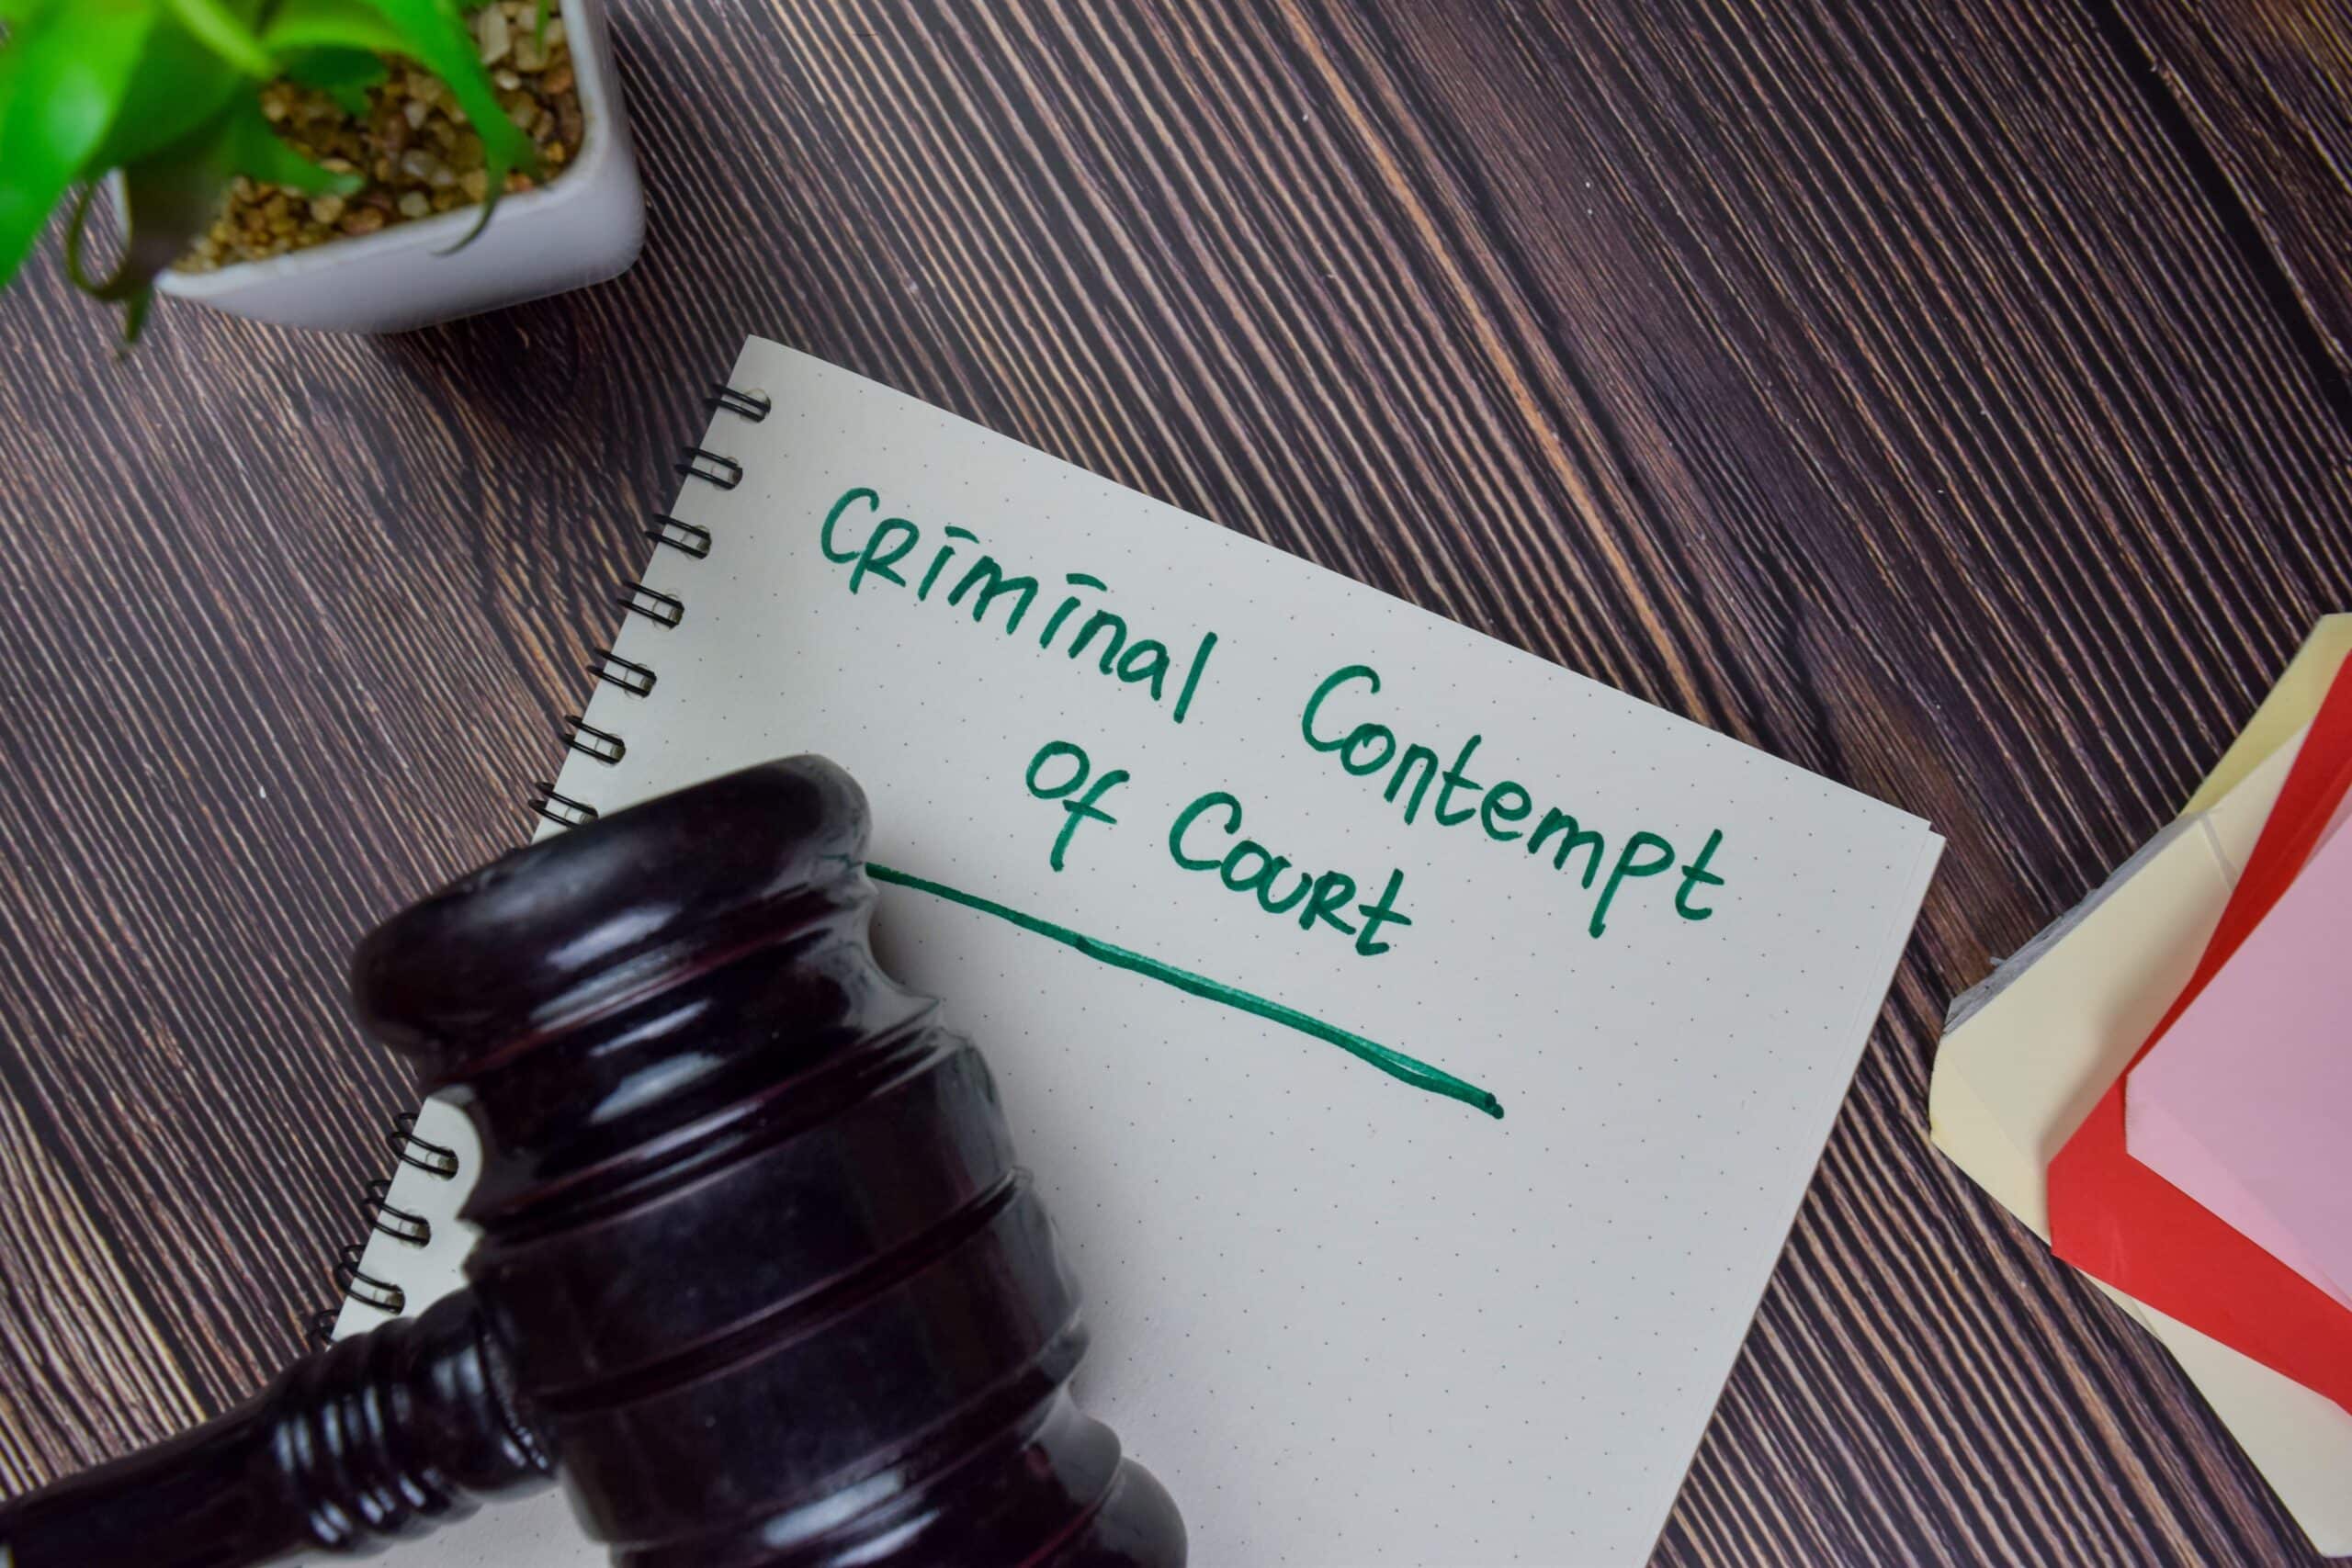 Criminal Contempt
of Court